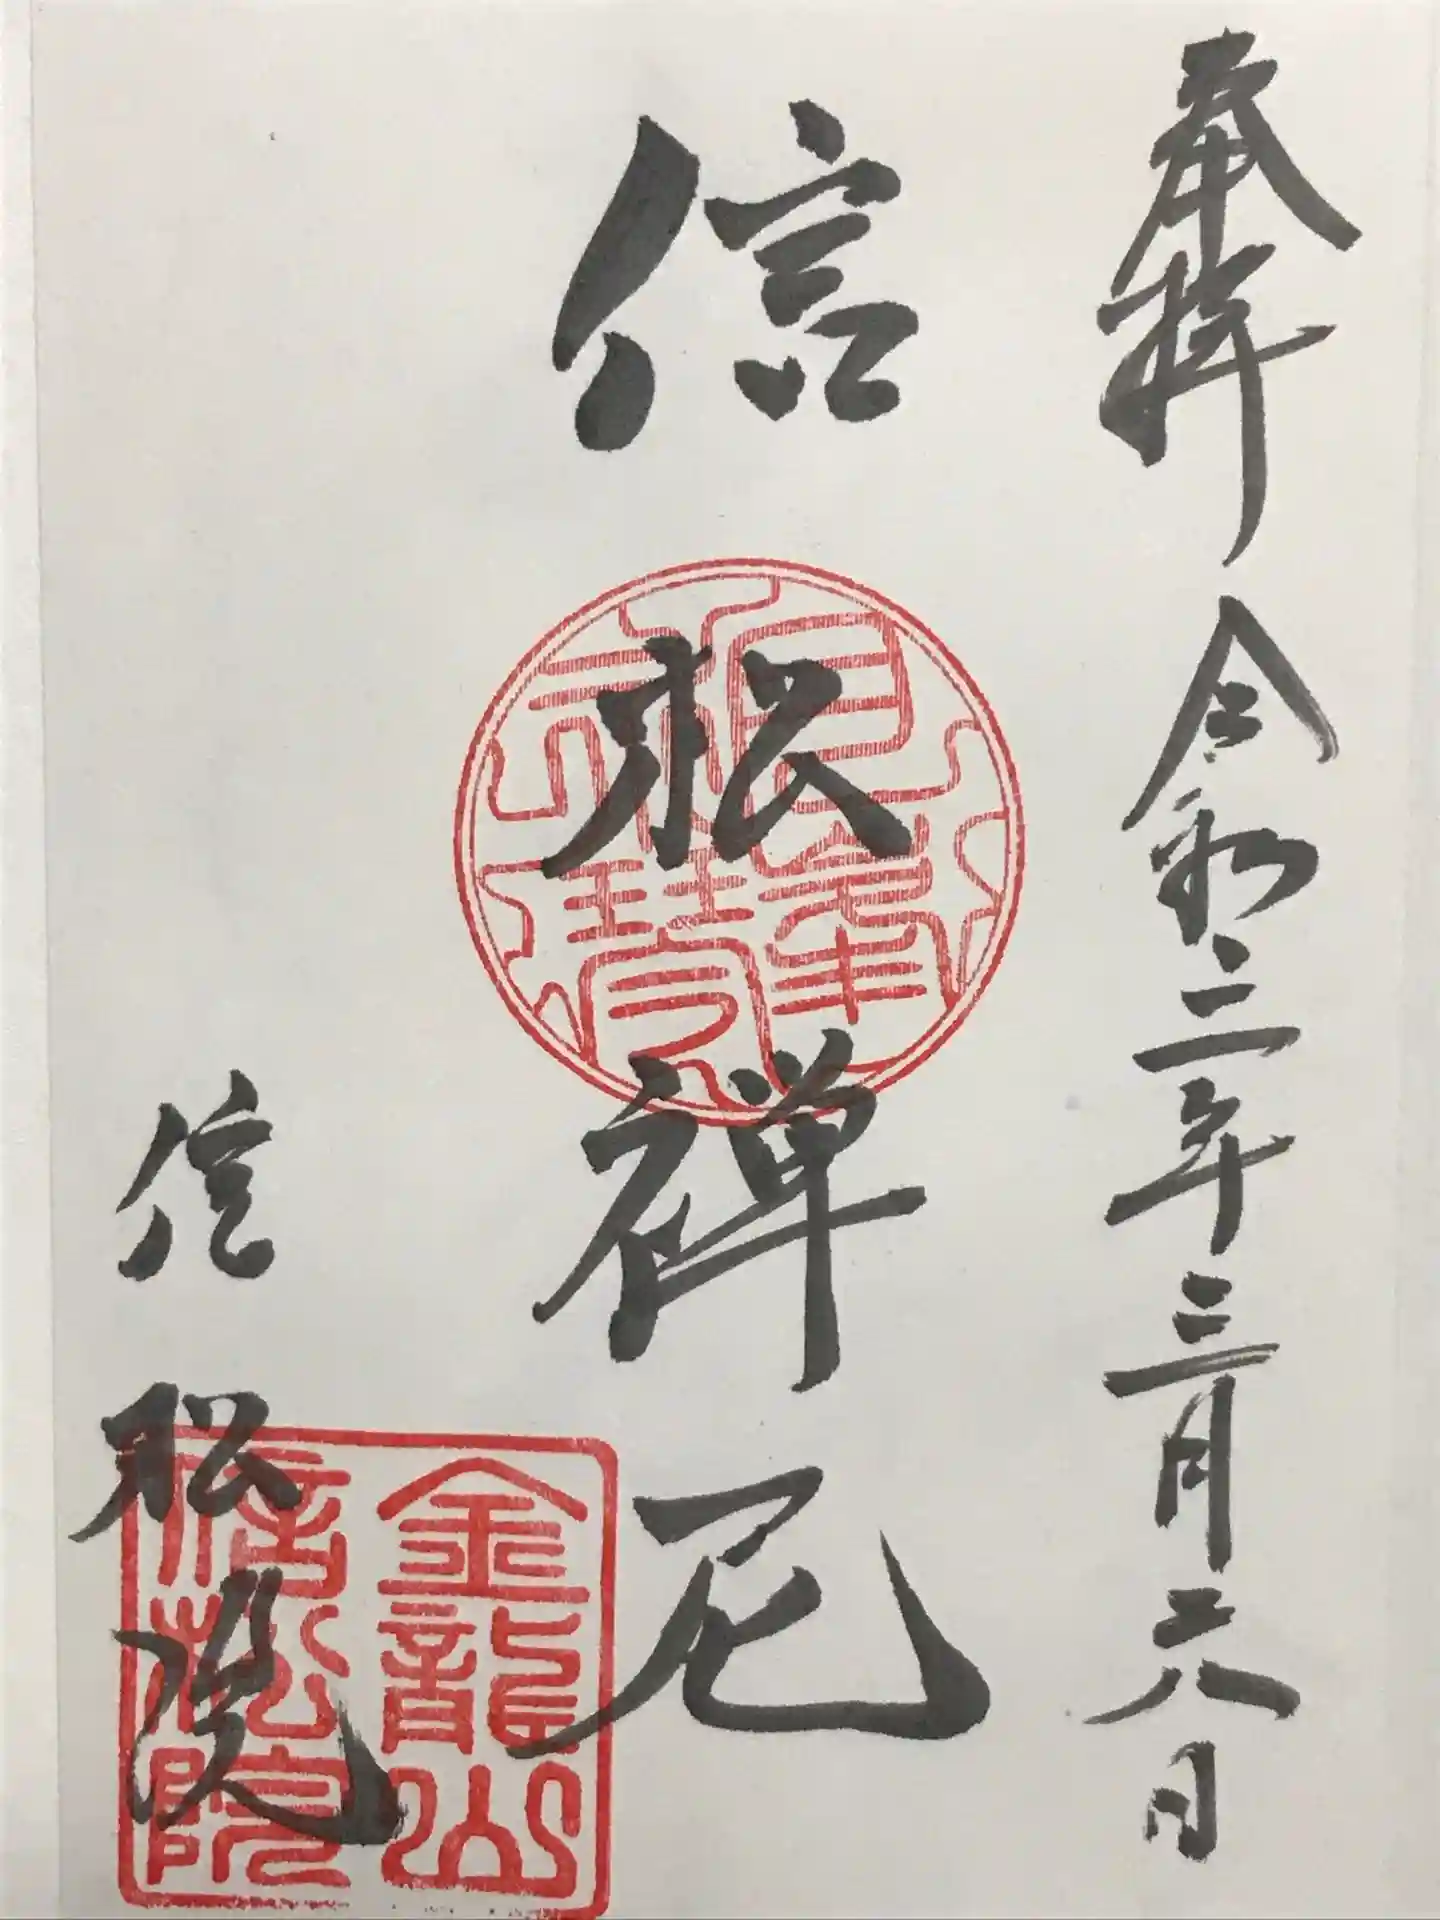 奉拝 令和二年三月二八日
信松禅尼
信松院
金龍山
信松院